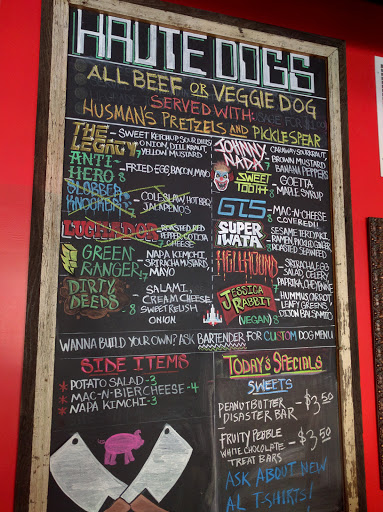 HAUTE DOGS
ALL BEEF OR VEGGIE DOG
SERVED WITH:
HUSMAN'S PRETZELS AND PICKLE SPEAR
THE LEGACY 7 - SWEET KETCHUP, SOUR DILLS,
ONION, DILL KRAUT,
YELLOW MUSTARD
ANTI-
HERO 8 - FRIED EGG, BACON, MAYO
SLOBBER
KNOCKER 8 - COLESLAW, HOT BBQ,
JALAPENOS
LUCHADOR - ROASTED RED
PEPPER COTIJA
7 CHEESE
GREEN
RANGER 7
NAPA KIMCHI,
SRIRACHA MUSTARD,
MAYO
DIRTY
DEEDS 8
SALAMI,
CREAM CHEESE
SWEET RELISH
ONION
JOHNNY
NADA 7
CARAWAY SOURKRAUT,
BROWN MUSTARD
BANANA PEPPERS
SWEET
TOOTH 8
GOETTA
MAPLE SYRUP
GTS 8 - MAC-N-CHEESE
COVERED!
SUPER
IWATA 8
SESAME TERIYAKI,
RAMEN, PICKLED GINGER
ROASTED SEAWEED
HELLHOUND
SRIRACHA, EGG
SALAD, CELERY
PAPRIKA, CHEYENNE
JESSICA
RABBIT
(VEGAN) 8
HUMMUS, CARROT
LEAFY GREENS
DIJON BALSAMICO
WANNA BUILD YOUR OWN? ASK BARTENDER FOR CUSTOM DOG MENU
SIDE ITEMS
* POTATO SALAD - 3
* MAC-N-BIERCHEESE - 4
* NAPA KIMCHI - 3
TODAY'S SPECIALS
SWEETS
PEANUT BUTTER
DISASTER BAR - $3.50
FRUITY PEBBLE
WHITE CHOCOLATE
TREAT BARS - $3.50
ASK ABOUT NEW
AL T-SHIRTS!